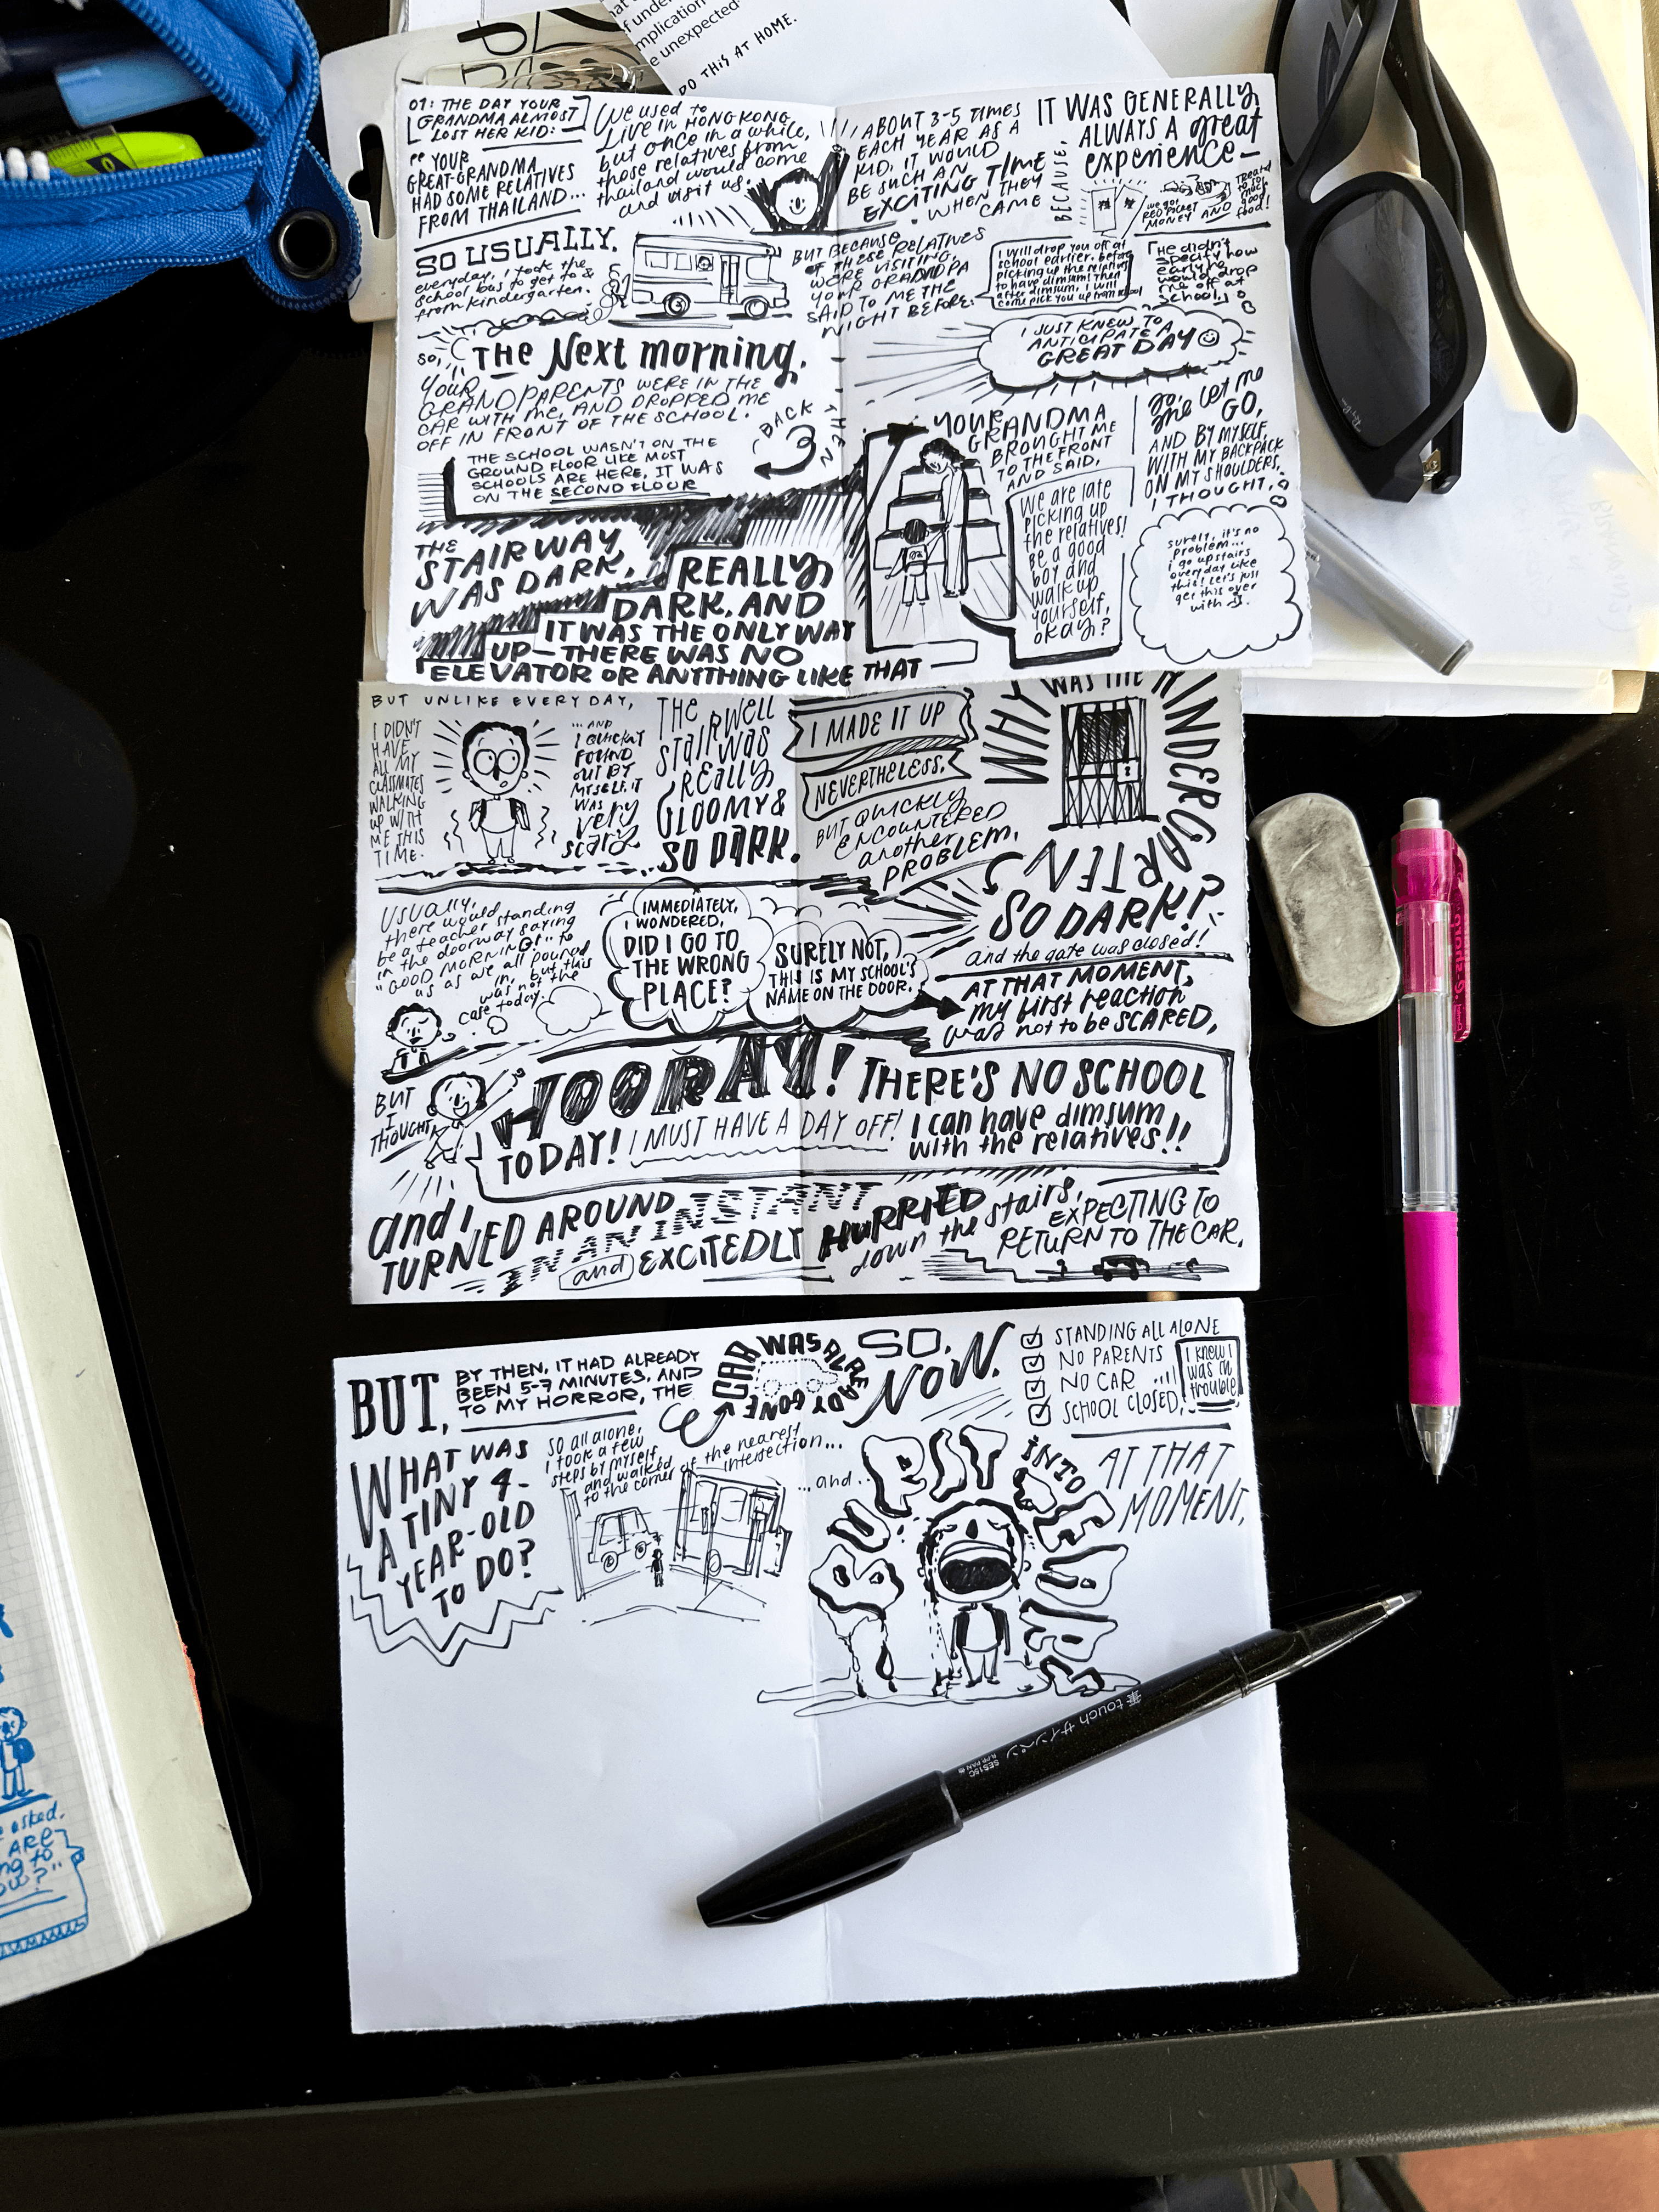 DO THIS AT HOME.
01: THE DAY YOUR
GRANDMA ALMOST
LOST HER KID:
"YOUR
GREAT-GRANDMA
HAD SOME RELATIVES
FROM THAILAND...
We used to
LIVE IN HONG KONG,
but once in a while,
those relatives from
thailand would come
and visit us.
ABOUT 3-5 TIMES
EACH YEAR AS A
KID, IT WOULD
BE SUCH AN
EXCITING TIME
WHEN THEY
CAME
IT WAS GENERALLY,
ALWAYS A great
experience—
BECAUSE,
we got
RED PACKET
MONEY AND
SO USUALLY,
everyday, I took the
school bus to get to &
from kindergarten.
BUT BECAUSE
OF THESE RELATIVES
WERE VISITING,
YOUR GRANDPA
SAID TO ME THE
NIGHT BEFORE:
I will drop you off at
school earlier, before
picking up the relatives
to have dimsum! then
after dimsum, I will
come pick you up from school
He didn't
specify how
early he
would drop
me off at
school.
I JUST KNEW TO
ANTICIPATE A
GREAT DAY
SO,
THE Next morning,
YOUR
GRANDPARENTS WERE IN THE
CAR WITH ME, AND DROPPED ME
OFF IN FRONT OF THE SCHOOL.
BACK THEN
THE SCHOOL WASN'T ON THE
GROUND FLOOR LIKE MOST
SCHOOLS ARE HERE, IT WAS
ON THE SECOND FLOOR
THE
STAIRWAY
WAS DARK,
REALLY
DARK, AND
IT WAS THE ONLY WAY
UP—THERE WAS NO
ELEVATOR OR ANYTHING LIKE THAT
YOUR GRANDMA
BROUGHT ME
TO THE FRONT
AND SAID,
We are late
picking up
the relatives!
Be a good
boy and
walk up
yourself,
okay?
So,
she let me
GO,
AND BY MYSELF,
WITH MY BACKPACK
ON MY SHOULDERS,
I THOUGHT,
surely, it's no
problem...
i go upstairs
everyday like
this! Let's just
get this over
with
BUT UNLIKE EVERY DAY,
I DIDN'T
HAVE
ALL MY
CLASSMATES
WALKING
UP WITH
ME THIS
TIME.
...AND
I QUICKLY
FOUND
OUT BY
MYSELF, IT
WAS very
scary.
THE
STAIRWELL
WAS
REALLY
GLOOMY &
SO DARK.
I MADE IT UP
NEVERTHELESS,
BUT QUICKLY
ENCOUNTERED
another
PROBLEM.
WHY WAS THE KINDERGARTEN
SO DARK?
and the gate was closed!
Usually,
there would
be a teacher standing
in the doorway saying
"GOOD MORNING!" to
us as we all poured
in, but this
was not the
case today.
IMMEDIATELY,
I WONDERED,
DID I GO TO
THE WRONG
PLACE?
SURELY NOT,
THIS IS MY SCHOOL'S
NAME ON THE DOOR.
AT THAT MOMENT,
my first reaction
was not to be SCARED,
BUT
I
THOUGHT
HOORAY! THERE'S NO SCHOOL
TODAY! I MUST HAVE A DAY OFF! I can have dimsum
with the relatives!!
and I
TURNED AROUND
IN AN INSTANT
and EXCITEDLY
HURRIED
down the stairs,
EXPECTING TO
RETURN TO THE CAR.
BUT,
BY THEN, IT HAD ALREADY
BEEN 5-7 MINUTES, AND
TO MY HORROR, THE
CAR WAS ALREADY GONE
SO,
NOW.
STANDING ALL ALONE
NO PARENTS
NO CAR
SCHOOL CLOSED,
I knew I
was in
trouble
WHAT WAS
A TINY 4-
YEAR-OLD
TO DO?
SO all alone,
I took a few
steps by myself
and walked
to the corner of the nearest
intersection...
...and..
BURST INTO TEARS
AT THAT
MOMENT,
touch サインペン
SES15C
asked.
ARE